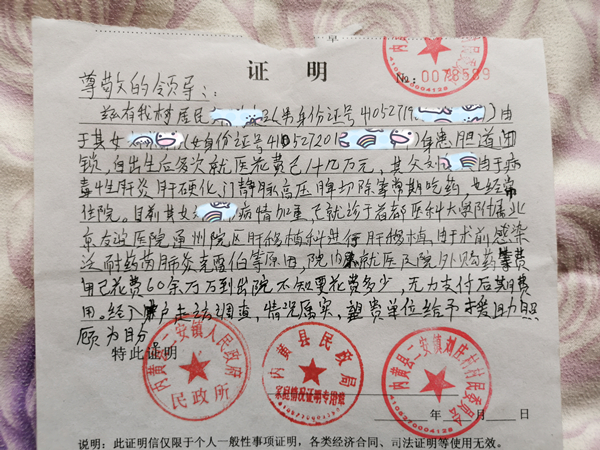 证 明
No: 0078539
尊敬的领导：
兹有我村居民 (男身份证号41052719 )由
于其女 (女身份证号410527201 )身患胆道闭
锁，自出生后多次就医花费已 万元，其父刘 由于病
毒性肝炎肝硬化门静脉高压脾切除要常期吃药也经常
住院。目前其女 病情加重 就诊于首都医科大学附属北
京友谊医院通州院区肝移植科进行肝移植，由于术前感染
泛耐药菌肺炎克雷伯等原因，院内就医及院外购药等费
用已花费60余万 到出院不知要花费多少，无力支付后期费
用。经入户走访调查，情况属实，望贵单位给予救助照
顾为盼
特此证明
内黄县二安镇人民政府
民政所
内黄县民政局
家庭情况证明专用章
内黄县二安镇刘庄村村民委员会
年 月 日
说明：此证明信仅限于个人一般性事项证明，各类经济合同、司法证明等使用无效。